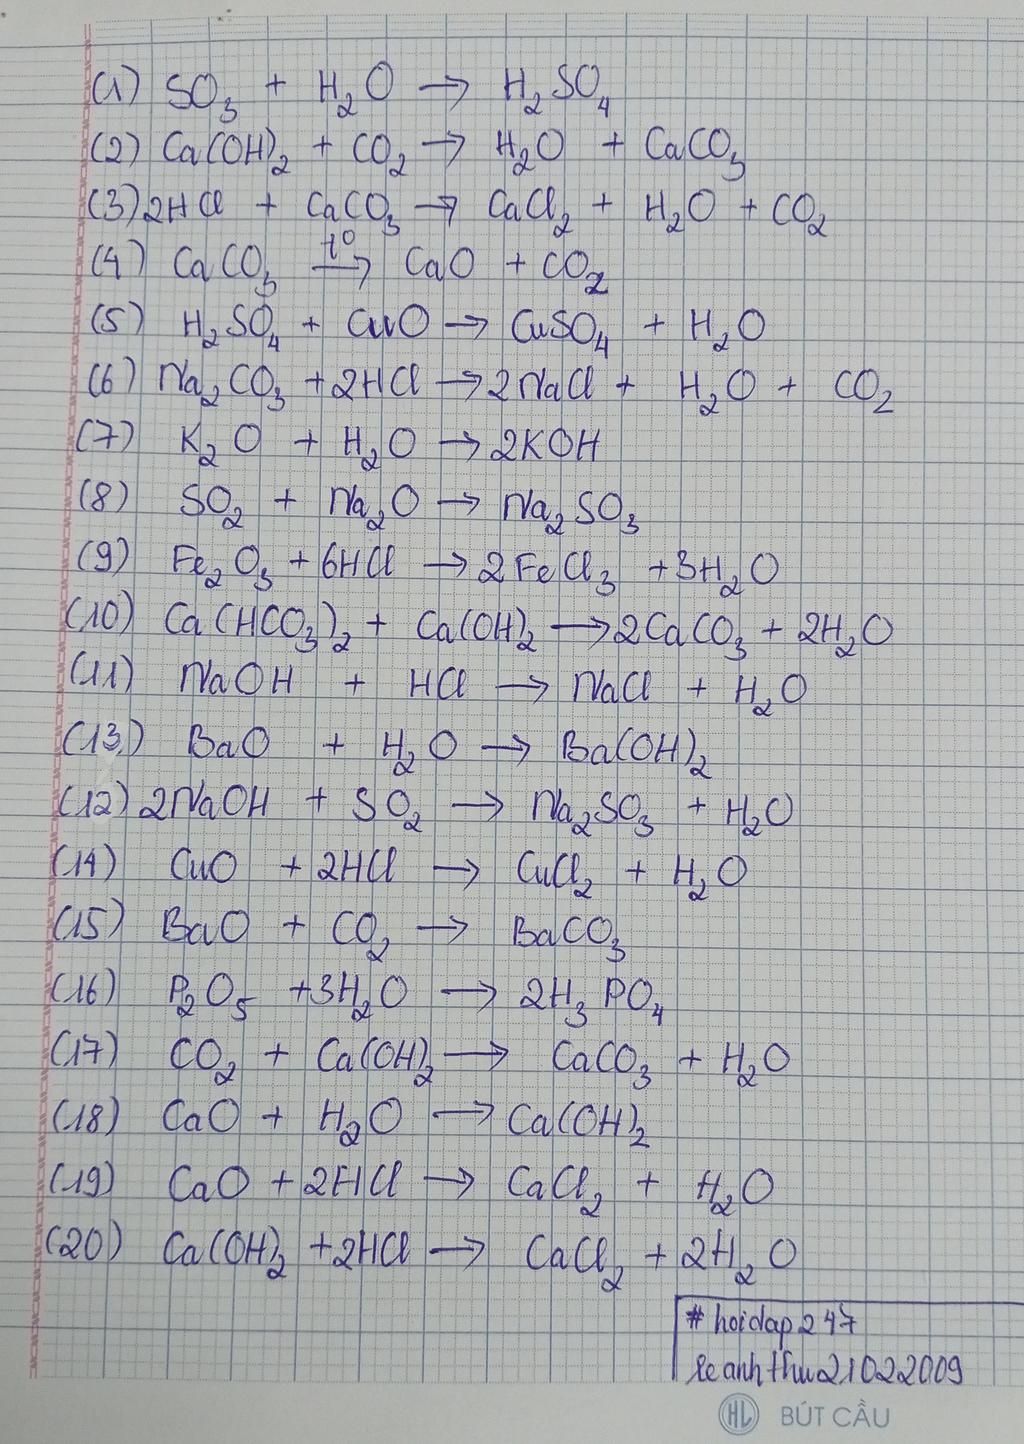 (1) SO₃ + H₂O → H₂SO₄
(2) Ca(OH)₂ + CO₂ → H₂O + CaCO₃
(3) 2HCl + CaCO₃ → CaCl₂ + H₂O + CO₂
(4) CaCO₃ –t⁰→ CaO + CO₂
(5) H₂SO₄ + CuO → CuSO₄ + H₂O
(6) Na₂CO₃ + 2HCl → 2NaCl + H₂O + CO₂
(7) K₂O + H₂O → 2KOH
(8) SO₂ + Na₂O → Na₂SO₃
(9) Fe₂O₃ + 6HCl → 2FeCl₃ + 3H₂O
(10) Ca(HCO₃)₂ + Ca(OH)₂ → 2CaCO₃ + 2H₂O
(11) NaOH + HCl → NaCl + H₂O
(13) BaO + H₂O → Ba(OH)₂
(12) 2NaOH + SO₂ → Na₂SO₃ + H₂O
(14) CuO + 2HCl → CuCl₂ + H₂O
(15) BaO + CO₂ → BaCO₃
(16) P₂O₅ + 3H₂O → 2H₃PO₄
(17) CO₂ + Ca(OH)₂ → CaCO₃ + H₂O
(18) CaO + H₂O → Ca(OH)₂
(19) CaO + 2HCl → CaCl₂ + H₂O
(20) Ca(OH)₂ + 2HCl → CaCl₂ + 2H₂O
# hoidap247
leanhthu21022009
HL BÚT CẦU